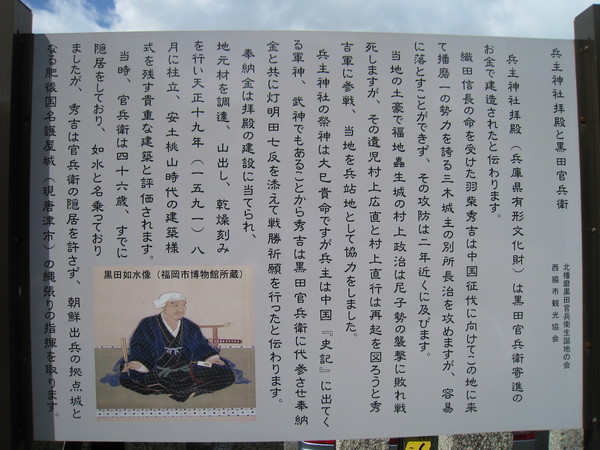 兵主神社拝殿と黒田官兵衛
北播磨黒田官兵衛生誕地の会
西脇市観光協会
兵主神社拝殿（兵庫県有形文化財）は黒田官兵衛寄進の
お金で建造されたと伝わります。
織田信長の命を受けた羽柴秀吉は中国征伐に向けてこの地に来
て播磨一の勢力を誇る三木城主の別所長治を攻めますが、容易
に落とすことができず、その攻防は二年近くに及びます。
当地の土豪で福地蟲生城の村上政治は尼子勢の襲撃に敗れ戦
死しますが、その遺児村上広直と村上直行は再起を図ろうと秀
吉軍に参戦、当地を兵站地として協力をしました。
兵主神社の祭神は大巳貴命ですが兵主は中国『史記』に出てく
る軍神、武神でもあることから秀吉は黒田官兵衛に代参させ奉納
金と共に灯明田七反を添えて戦勝祈願を行ったと伝わります。
奉納金は拝殿の建設に当てられ、
地元材を調達、山出し、乾燥刻み
を行い天正十九年（一五九一）八
月に柱立、安土桃山時代の建築様
式を残す貴重な建築と評価されます。
当時、官兵衛は四十六歳、すでに
隠居をしており、如水と名乗っており
ましたが、秀吉は官兵衛の隠居を許さず、朝鮮出兵の拠点城と
なる肥後国名護屋城（現唐津市）の縄張りの指揮を取ります。
黒田如水像（福岡市博物館所蔵）